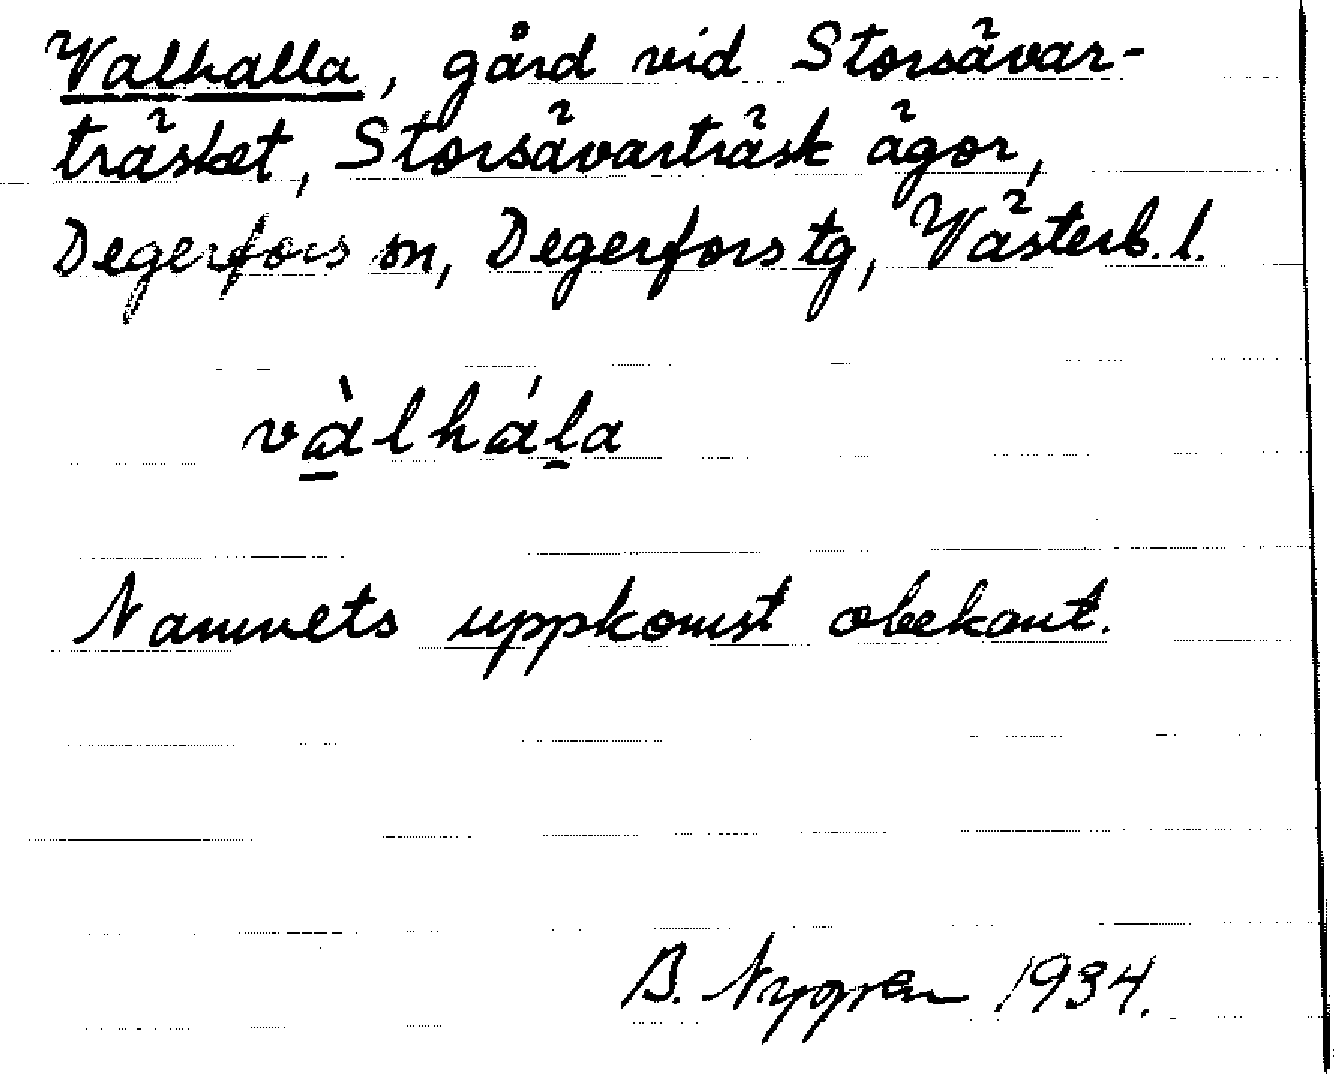 Valhalla, gård vid Storsävar-
träsket, Storsävarträsk ägor,
Degerfors sn, Degerfors tg, Västerb. l.
và̱lhál̲a
Namnets uppkomst obekant.
B. Nygren 1934.